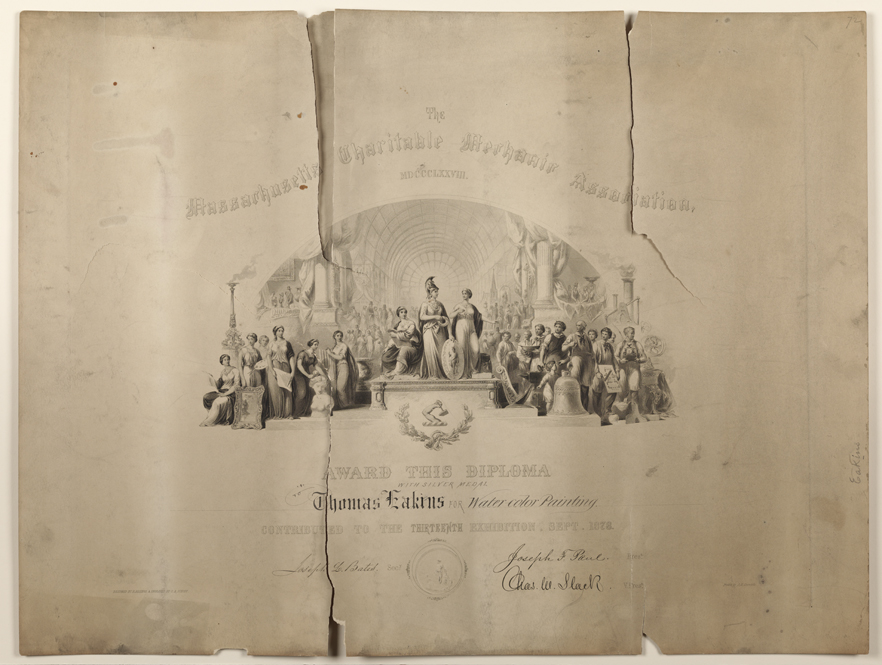 The
Massachusetts Charitable Mechanic Association,
MDCCCLXXVIII.
AWARD THIS DIPLOMA
WITH SILVER MEDAL
Thomas Eakins FOR Water color Painting.
CONTRIBUTED TO THE THIRTEENTH EXHIBITION, SEPT. 1878.
Joseph L. Bates, Joseph F. Paul.
Chas. W. Slack
Eakins